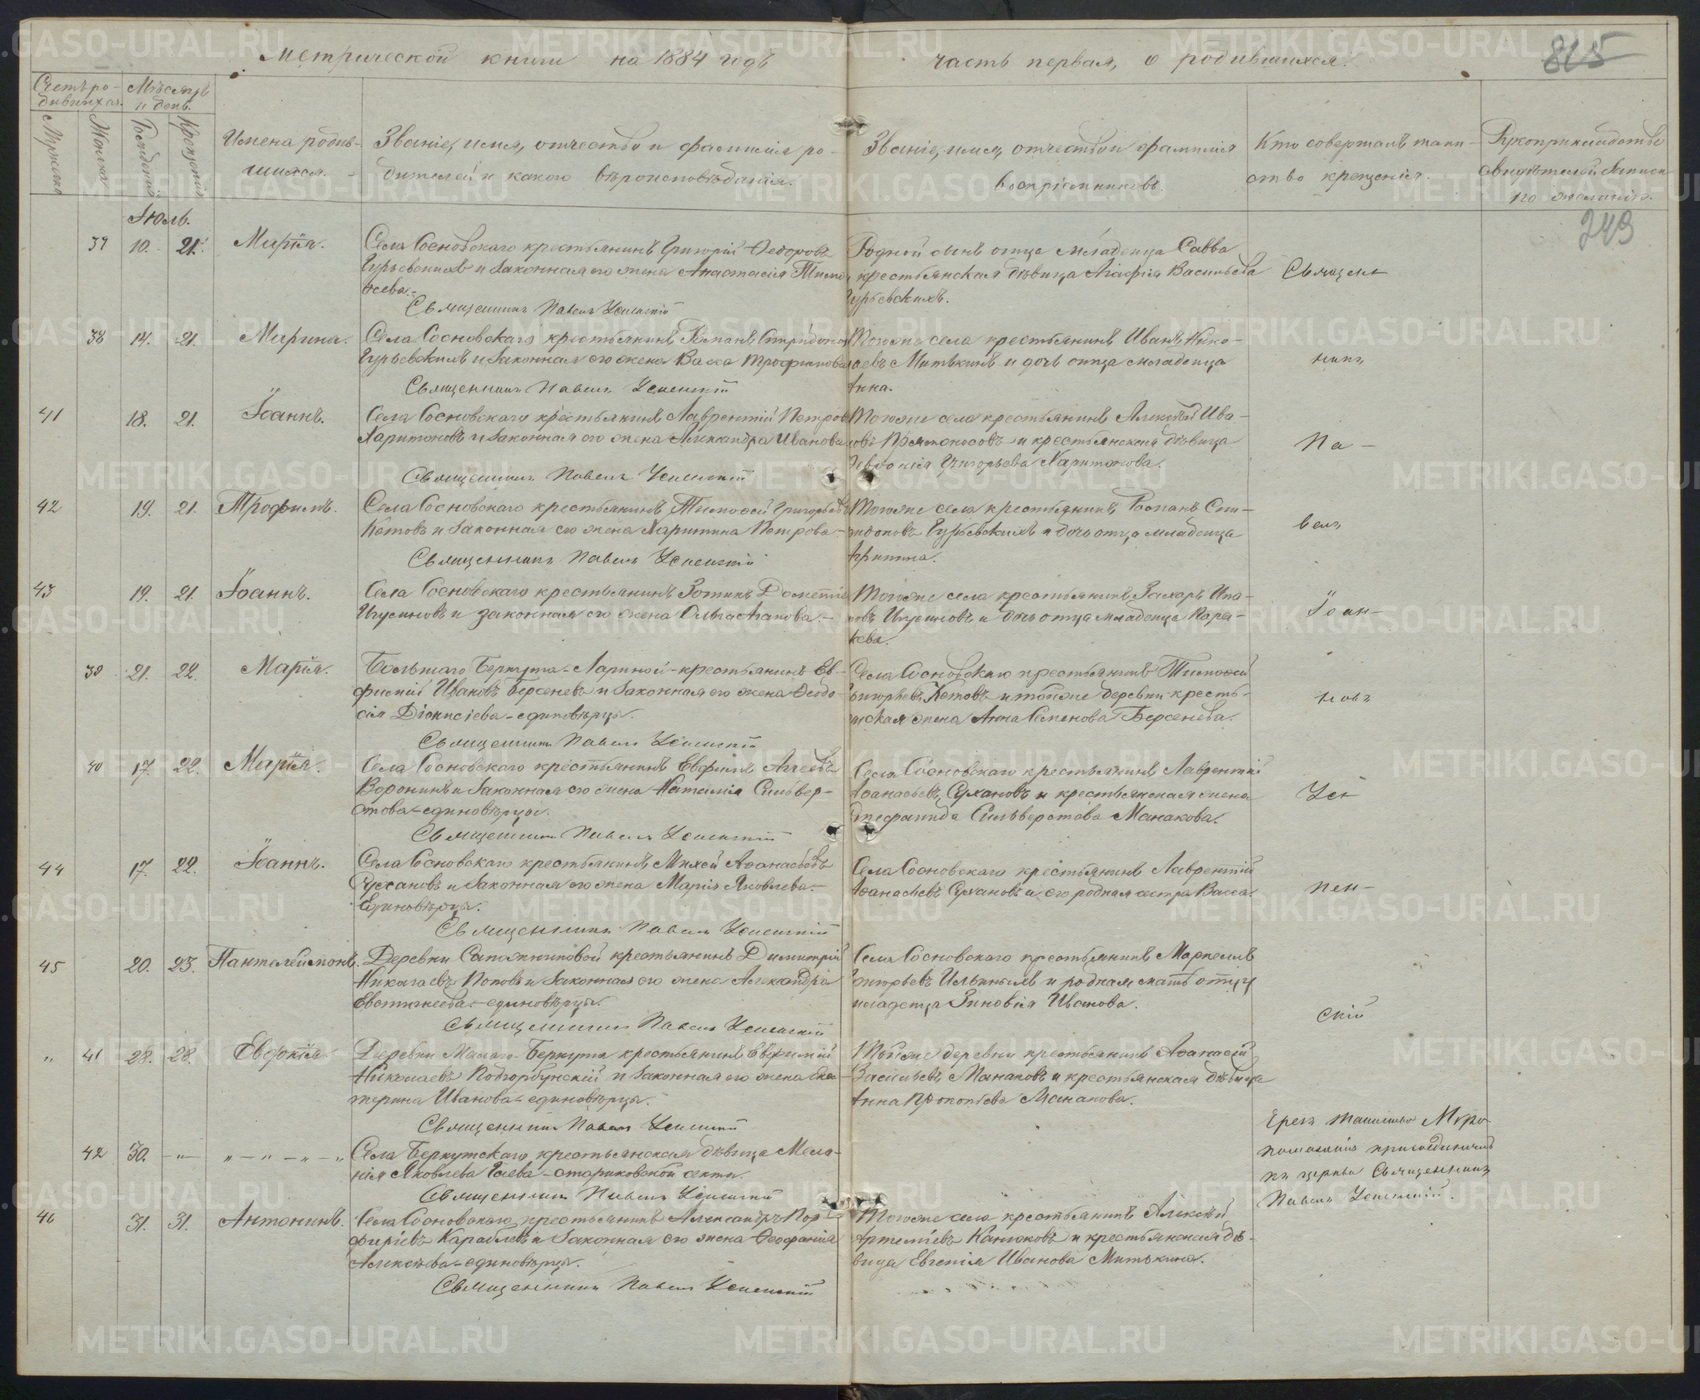 Метрической книги на 1884 годъ
часть первая, о родившихся.
815
Счетъ ро-
дившихся.
Мѣсяцъ
и день.
Мужеска
Женска
Рожденія
Крещенія
Имена родив-
шихся.
Званіе, имя, отчество и фамилія ро-
дителей и какого вѣроисповѣданія.
Званіе, имя, отчество и фамилія
воспріемниковъ.
Кто совершалъ таин-
ство крещенія.
Рукоприкладство
свидѣтелей записи
по желанію.
249
Іюль.
37 10. 21. Марія.
Села Сосновскаго крестьянинъ Григорій Ѳедоровъ
Гурьевскихъ и законная его жена Анастасія Тимо-
ѳеева.
Священникъ Павелъ Успенскій
Родной сынъ отца младенца Савва
и крестьянская дѣвица Агафія Васильева
Гурьевскихъ.
Священ
38 14. 21. Марина.
Села Сосновскаго крестьянинъ Романъ Спиридонов
Гурьевскихъ и законная его жена Васса Трофимова
Священникъ Павелъ Успенскій
Тогоже села крестьянинъ Иванъ Нико-
лаевъ Митькинъ и дочь отца младенца
Анна.
никъ
41 18. 21. Іоаннъ.
Села Сосновскаго крестьянинъ Лаврентій Петров
Харитоновъ и законная его жена Александра Иванова
Священникъ Павелъ Успенскій
Тогоже села крестьянинъ Алексѣй Ива-
новъ и крестьянская дѣвица
Евдокія Григорьева Харитонова.
Па-
42 19. 21. Трофимъ.
Села Сосновскаго крестьянинъ Тимоѳей Григорьевъ
Кетовъ и законная его жена Харитина Петрова
Священникъ Павелъ Успенскій
Тогоже села крестьянинъ Романъ Спи-
ридоновъ Гурьевскихъ и дочь отца младенца
Ириниа.
велъ
43 19. 21. Іоаннъ.
Села Сосновскаго крестьянинъ Зотикъ Дометіе
и законная его жена Ольга
Тогоже села крестьянинъ Захаръ Ива-
новъ и дочь отца младенца Пара-
скева.
Іоан-
39 21. 22. Марія.
Большаго Беркута-Лариной-крестьянинъ Ев-
фимій Ивановъ Берсеневъ и законная его жена Ѳеодо-
сія Діонисіева-единовѣрцы.
Священникъ Павелъ Успенскій
Села Сосновскаго крестьянинъ Тимоѳей
Григорьевъ Кетовъ и тойже деревни кресть-
янская жена Анна Семенова Берсенева.
новъ
40 17. 22. Марія.
Села Сосновскаго крестьянинъ Евфимъ
Воронинъ и законная его жена Наталія Сильвер-
стова-единовѣрцы.
Священникъ Павелъ Успенскій
Села Сосновскаго крестьянинъ Лаврентій
Аѳанасьевъ Сухановъ и крестьянская жена
Степанида Сильверстова Манакова.
Усп
44 17. 22. Іоаннъ.
Села Сосновскаго крестьянинъ Михей Аѳанасьевъ
Сухановъ и законная его жена Марія Яковлева.
Единовѣрцы.
Священникъ Павелъ Успенскій
Села Сосновскаго крестьянинъ Лаврентій
Аѳанасьевъ Сухановъ и его родная сестра Васса.
пен-
45 20. 23. Пантелеймонъ.
Деревни Сапожниковой крестьянинъ Димитрій
Николаевъ Поповъ и законная его жена Александра
Евстигнеева-единовѣрцы.
Священникъ Павелъ Успенскій
Села Сосновскаго крестьянинъ Маркеллъ
Григорьевъ Ильиныхъ и родная мать отца
младенца Зиновія Иванова.
скій
" 41 28. 28. Евдокія.
Деревни Малаго-Беркута крестьянинъ Евфимій
Николаевъ Подгорбунскій и законная его жена Ека-
терина Иванова-единовѣрцы.
Священникъ Павелъ Успенскій
Тойже деревни крестьянинъ Аѳанасій
Васильевъ Манаковъ и крестьянская дѣвица
Анна Прокопьева Манакова.
42 30. - " - " - " - " - "
Села Беркутскаго крестьянская дѣвица Мела-
нія Яковлева Гаева-стариковской секты.
Священникъ Павелъ Успенскій
Чрезъ таинство Мѵро-
помазанія присоединилъ
къ церкви Священникъ
Павелъ Успенскій.
46 31. 31. Антонинъ.
Села Сосновскаго крестьянинъ Александръ Пор-
фирьевъ Караблевъ и законная его жена Ѳеофанія
Алексѣева-единовѣрцы.
Священникъ Павелъ Успенскій
Тогоже села крестьянинъ Алексѣй
Артеміевъ Канюковъ и крестьянская дѣ-
вица Евгенія Иванова Митькина.
METRIKI.GASO-URAL.RU